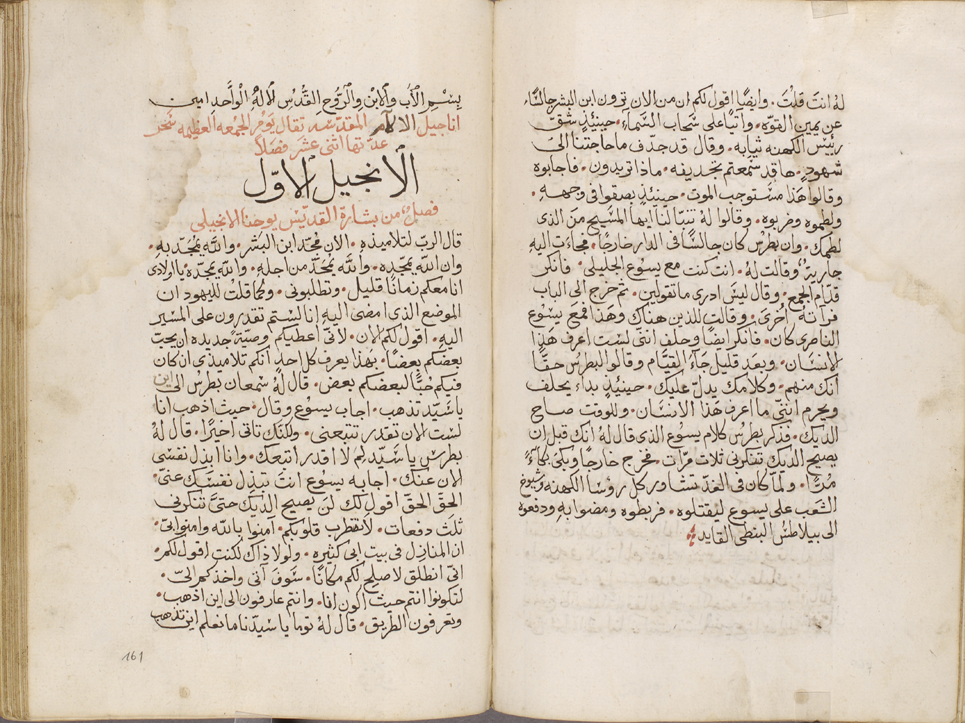 لهُ انتَ قلتَ. وايضًا اقول لكم ان من الان ترون ابن البشر جالسًا
عن يمين القوّه. واتيًا على سَحاب السّماء. حينيذٍ شقّ
رئيس الكهنه ثيابه. وقال قد جدف ما حاجتنا الى
شهودٍ. ها قد سَمعتم تجديفه. ماذا تريدون. فاجابوه
وقالوا هَذا مستوجب الموت. حينيذٍ بصقوا في وجههِ.
ولطموه وضربوه. وقالوا لهُ تنبّا لنا ايها المسّيح من الذى
لطمك. وان بطرس كان جالسًا في الدار خارجًا. فجاءت اليهِ
جاريةٌ وقالت لهُ. انت كنت مع يسوع الجليلي. فانكر
قدّام الجمع. وقال ليسَ ادرى ما تقولين. ثم خرج الى الباب
فراته اُخرَى. وقالت للذين هناك وهذا مع يسوع
الناصرى كان. فانكر ايضًا وحلف انني لسَت اعرف هذا
الانسَان. وبعد قليل جَآء القيّام وقالوا لبطرس حقًا
انك منهم. وكلامك يدلّ عليك. حينيذٍ بداء يحلف
ويحرم انّني ما اعرف هَذا الانسَان. وللوقت صاح
الديك. فذكر بطرس كلام يسوع الذى قال لهُ انك قبل ان
يصيح الديك تنكرني ثلاث مرّات. فخرج خارجًا وبكى بكآءً
مُرًّا. ولمّا كان في الغد تشاور كل روسَا الكهنه وشيوخ
الشعب على يسوع ليقتلوه. فربطوه ومضوا بهِ ودفعوه
الى بيلاطسُ البنطى القايد
بِسْمِ الْأَبِ والْاِبْنِ والرّوُحِ القُدُسِ الْاِلهِ الْوَاحدِ امين
اناجيل الالام المقدسَه تقال يَوم الجمعه العظيمه سَحر
عدتها اثنى عشر فصلًا
الْانجيل الْاوّل
فصلٌ من بشارة القديّس يوحنا الانجيلى
قال الربّ لتلاميذهِ. الان مُجّد ابن البشر. والله يُمجّد بهِ.
وان الله يمجّد به. والله يُمجّد من اجلهِ. والله يمجّده يا اولادى
انا معكم زمانًا قليل. وتطلبونى. وكما قلت لليهود ان
الموضع الذى امضى اليهِ انا لستم تقدرون على المسَير
اليهِ. اقول لكم الان. لانّى اعطيكم وصيّةً جديده ان يحبّ
بعضكم بعضًا. بهذا يعرف كل احدٍ انكم تلاميذى ان كان
فيكم حُبًّا لبعضكم بعض. قال لهُ سمعان بطرس الى اين
ياسَيّد تذهب. اجاب يسوع وقال. حيث اذهب انا
لسْت الان تقدر تتبعنى. ولكنّك تاتى اخيرًا. قال لهُ
بطرس ياسَيّد لِم لا اقدر اتبعك. وانا ابذل نفسى
الان عنك. اجابه يسوع انت تبذل نفسَك عنّى
الحقّ الحقّ اقول لك لن يصيح الديك حتّى تنكرنى
ثلث دفعات. لا تضطرب قلوبكم. آمنوا بالله وامنوا بى.
ان المنازل في بيت ابى كثيره. ولولا ذاك لكنت اقول لكم.
انّى انطلق لاصلح لكم مكانًا. سَوف آتى واخذكم الىّ.
لتكونوا انتم حيث اكون انا. وانتم عارفون الى اين اذهب.
وتعرفون الطريق. قال لهُ توما ياسَيّدنا ما نعلم اين تذهب
161